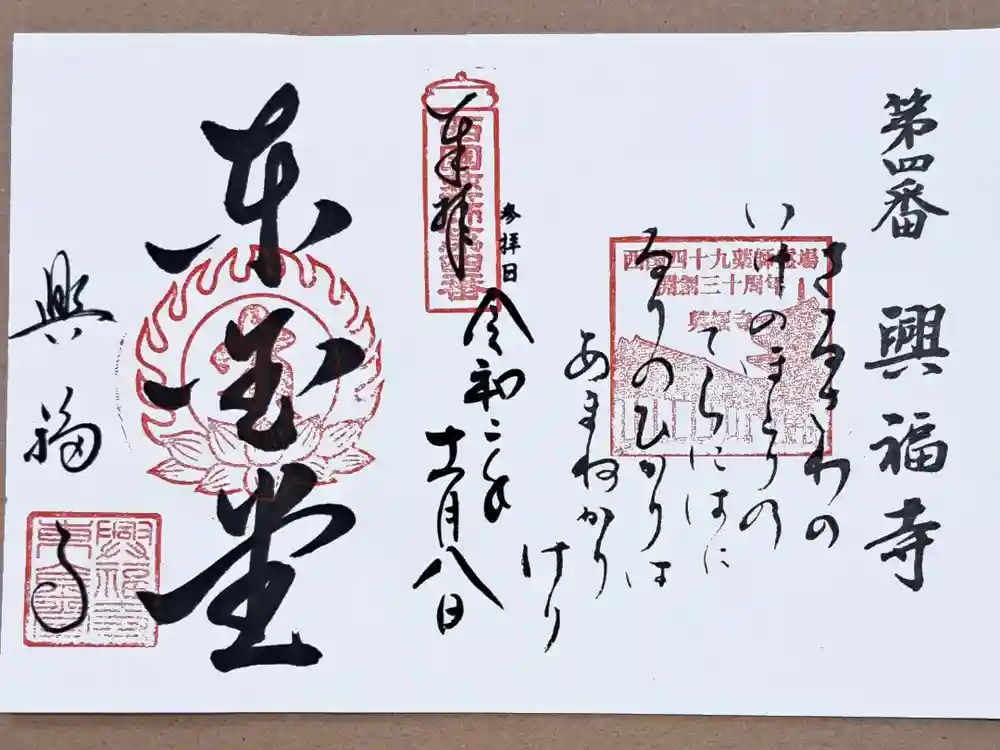 第四番 興福寺
さるさわの
いけのほとりの
てらにはに
るりのひかりは
あまねかり
けり
西国四十九薬師霊場
開創三十周年
興福寺
参拝日
令和二年
十一月八日
奉拝
東金堂
興福寺